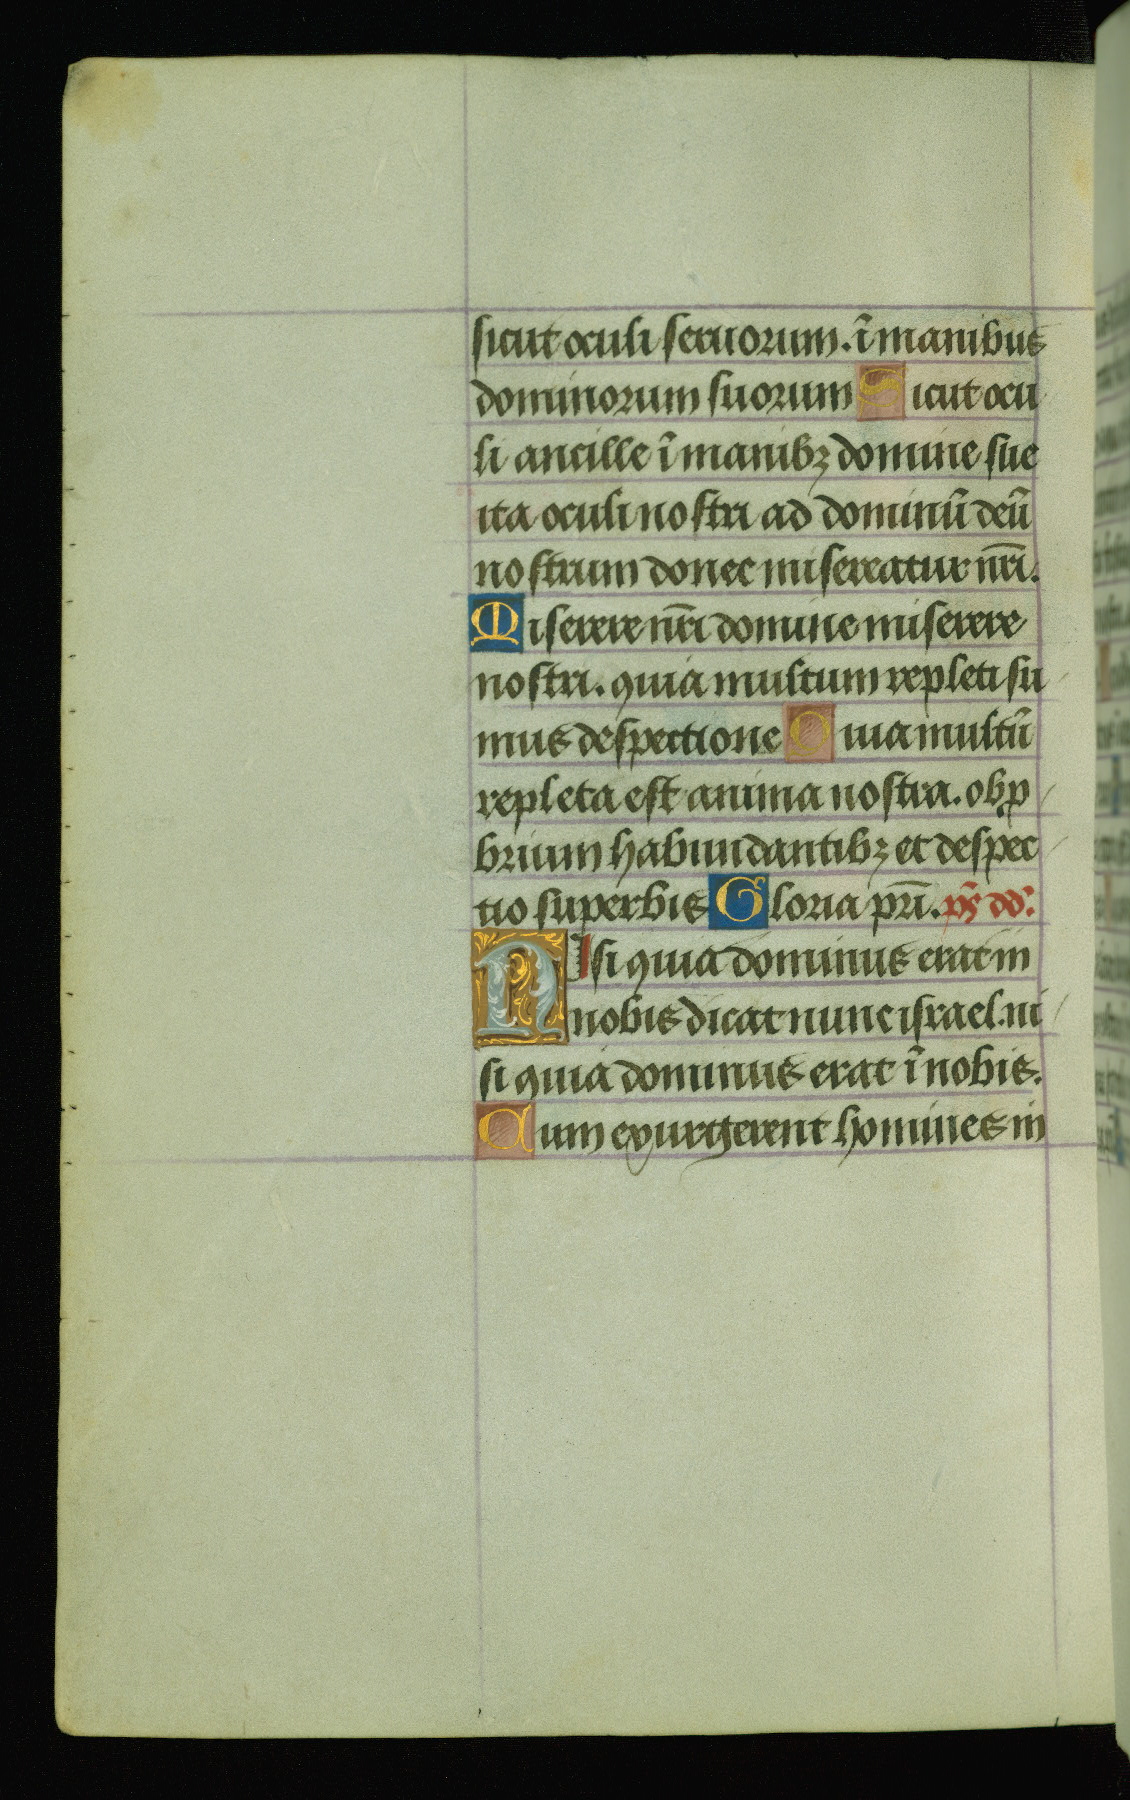 sicut oculi seruorum. ī manibus
dominorum suorum Sicut ocu
li ancille ī manibꝫ domine sue
ita oculi nostri ad dominū deū
nostrum donec misereatur nr̄i.
Miserere nr̄i domine miserere
nostri. quia multum repleti su
mus despectione Quia multū
repleta est anima nostra. obꝓ
brium habundantibꝫ et despec
tio superbis Gloria pr̄i. ps̄ dd̄.
NIsi quia dominus erat in
nobis dicat nunc israel. ni
si quia dominus erat ī nobis.
Cum exurgerent homines in